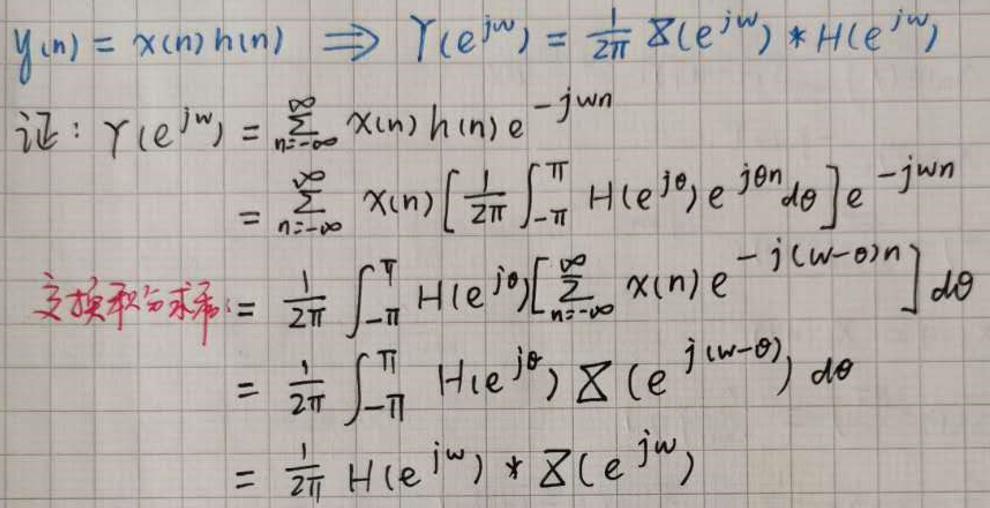 y(n) = x(n) h(n) ⟹ Y(e^{jw}) = \frac{1}{2π} X(e^{jw}) * H(e^{jw})
证: Y(e^{jw}) = \sum_{n=-∞}^{∞} x(n) h(n) e^{-jwn}
= \sum_{n=-∞}^{∞} x(n) [ \frac{1}{2π} \int_{-π}^{π} H(e^{jθ}) e^{jθn} dθ ] e^{-jwn}
交换积分求和: = \frac{1}{2π} \int_{-π}^{π} H(e^{jθ}) [ \sum_{n=-∞}^{∞} x(n) e^{-j(w-θ)n} ] dθ
= \frac{1}{2π} \int_{-π}^{π} H(e^{jθ}) X(e^{j(w-θ)}) dθ
= \frac{1}{2π} H(e^{jw}) * X(e^{jw})